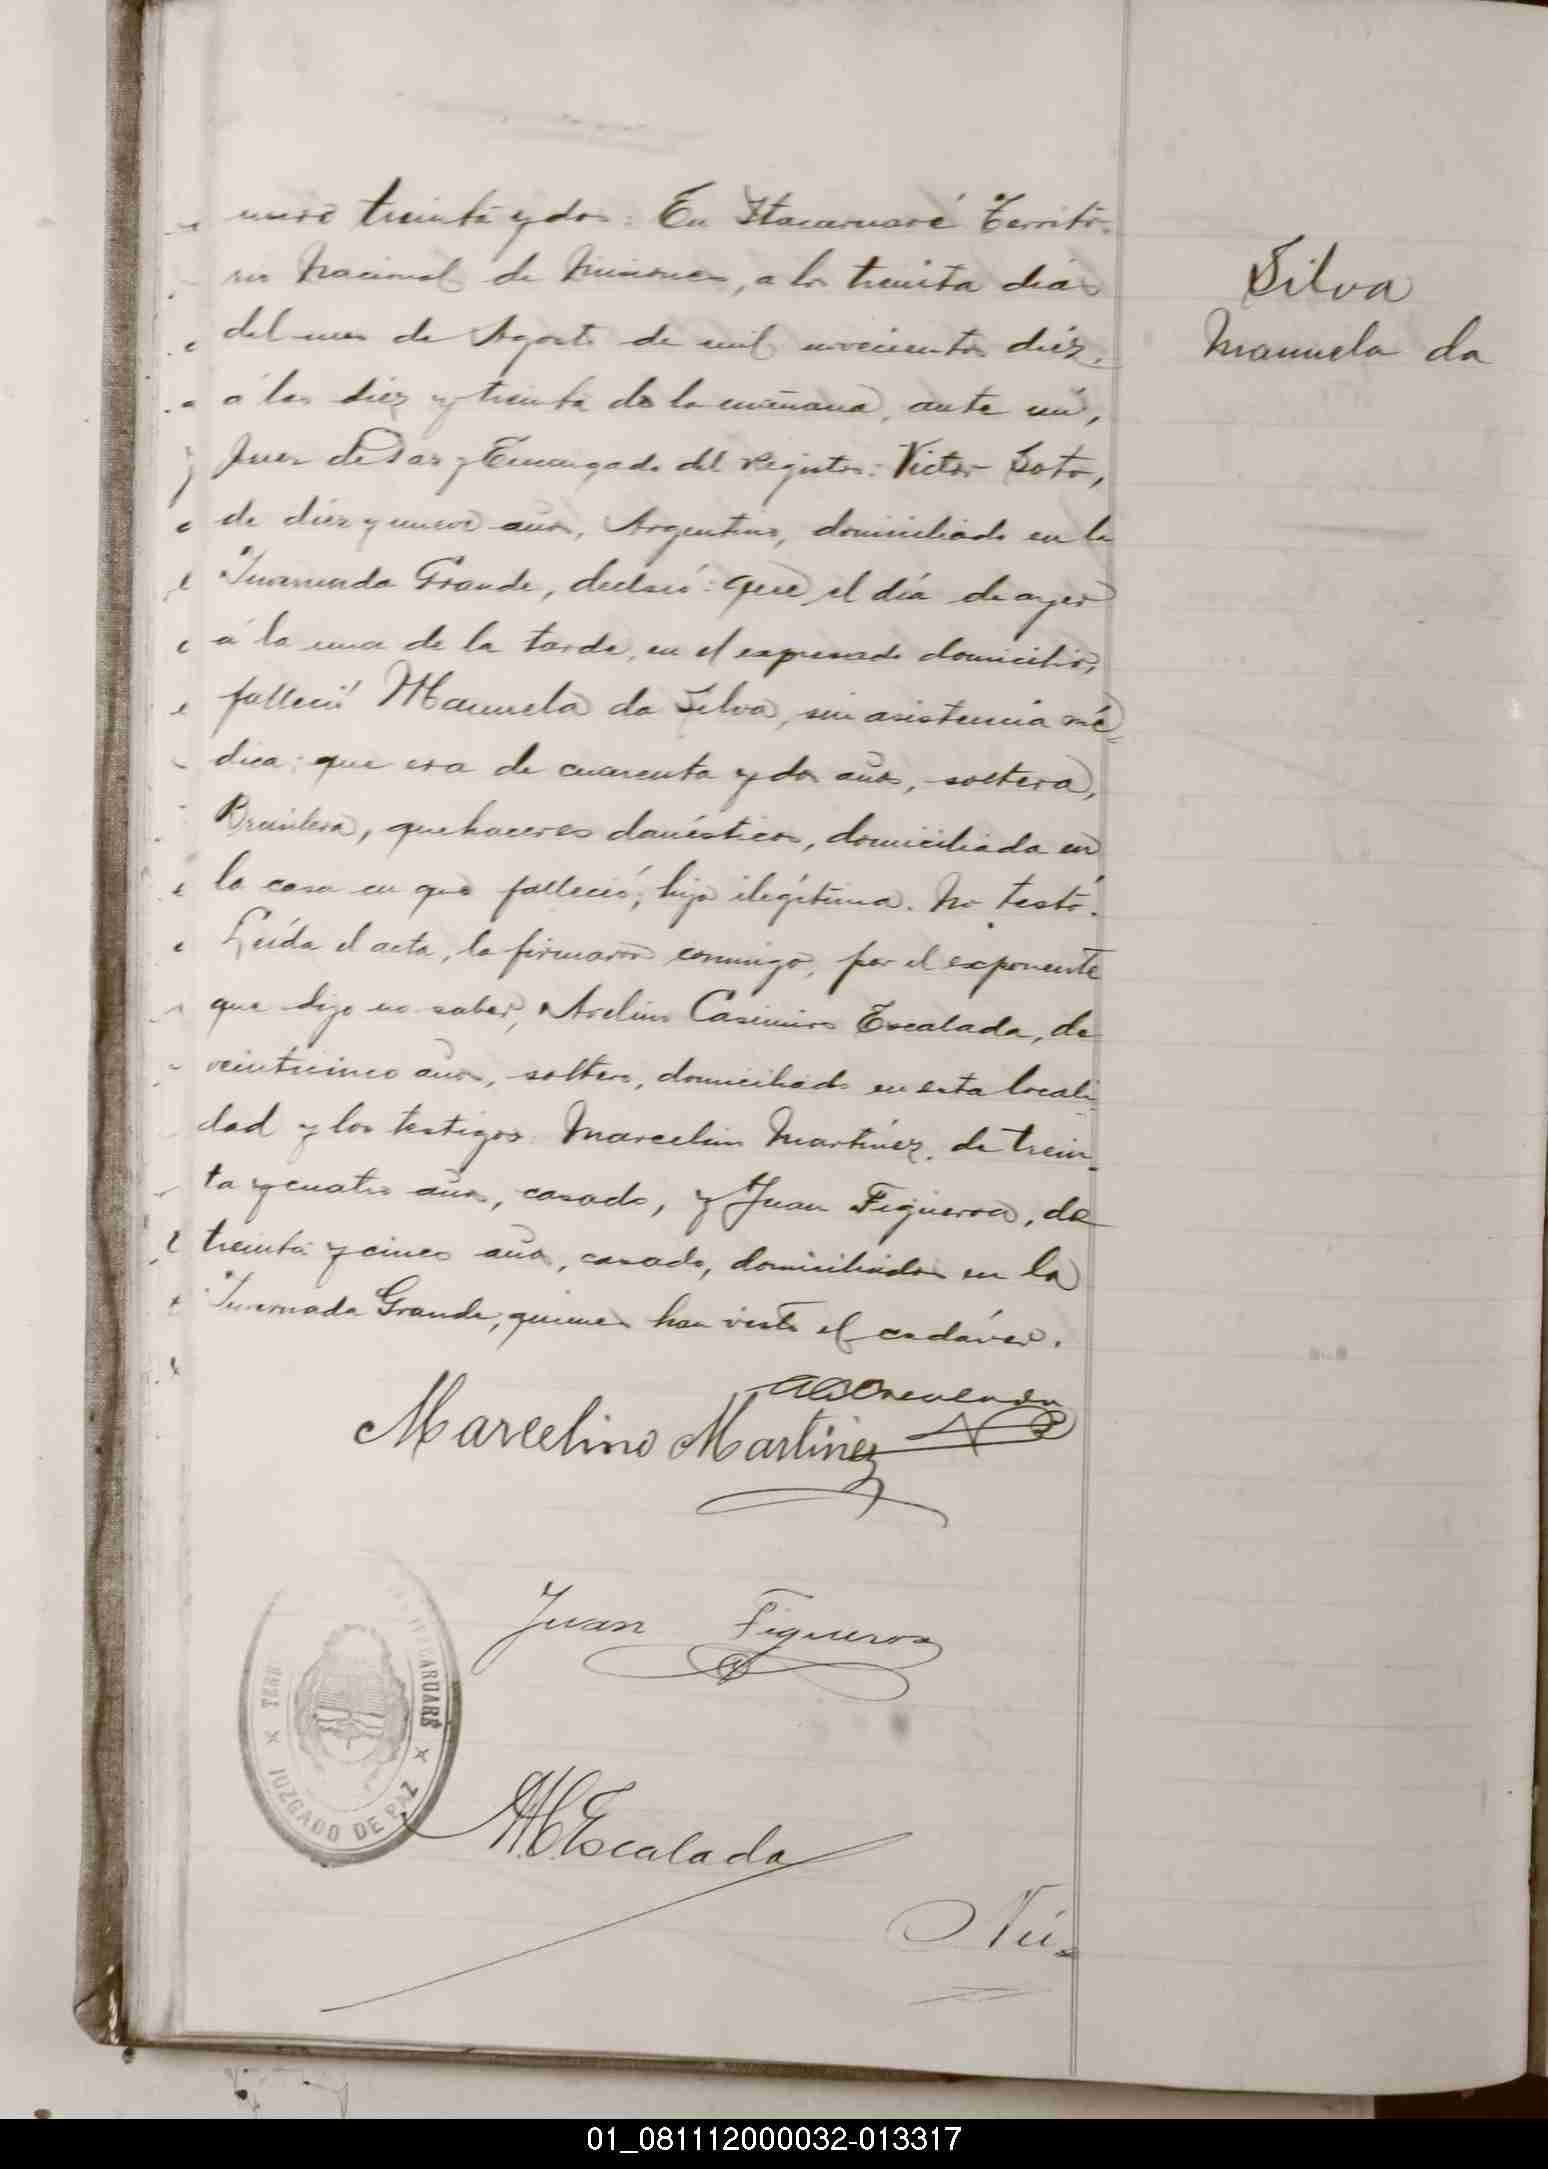 mero treinta y dos: En Itacaruaré Territo-
rio Nacional de Misiones, a los treinta días
del mes de Agosto de mil novecientos diez,
á las diez y treinta de la mañana, ante mí,
Juez de Paz y Encargado del Registro: Victor Soto,
de diez y nueve años, Argentino, domiciliado en la
Invernada Grande, declaró: que el día de ayer
á la una de la tarde, en el expresado domicilio,
falleció Manuela da Silva, sin asistencia mé-
dica; que era de cuarenta y dos años, soltera,
Brasilera, quehaceres domésticos, domiciliada en
la casa en que falleció; hija ilegítima. No testó.
Leída el acta, la firmaron conmigo, por el exponente
que dijo no saber, Avelino Casimiro Escalada, de
veinticinco años, soltero, domiciliado en esta locali-
dad y los testigos: Marcelino Martínez, de trein-
ta y cuatro años, casado, y Juan Figueroa, de
treinta y cinco años, casado, domiciliados en la
Invernada Grande, quienes han visto el cadáver.
Marcelino Martinez
Juan Figueroa
A.C. Escalada
Nú-
Silva
Manuela da
TERR ITACARUARÉ
JUZGADO DE PAZ
01_081112000032-013317